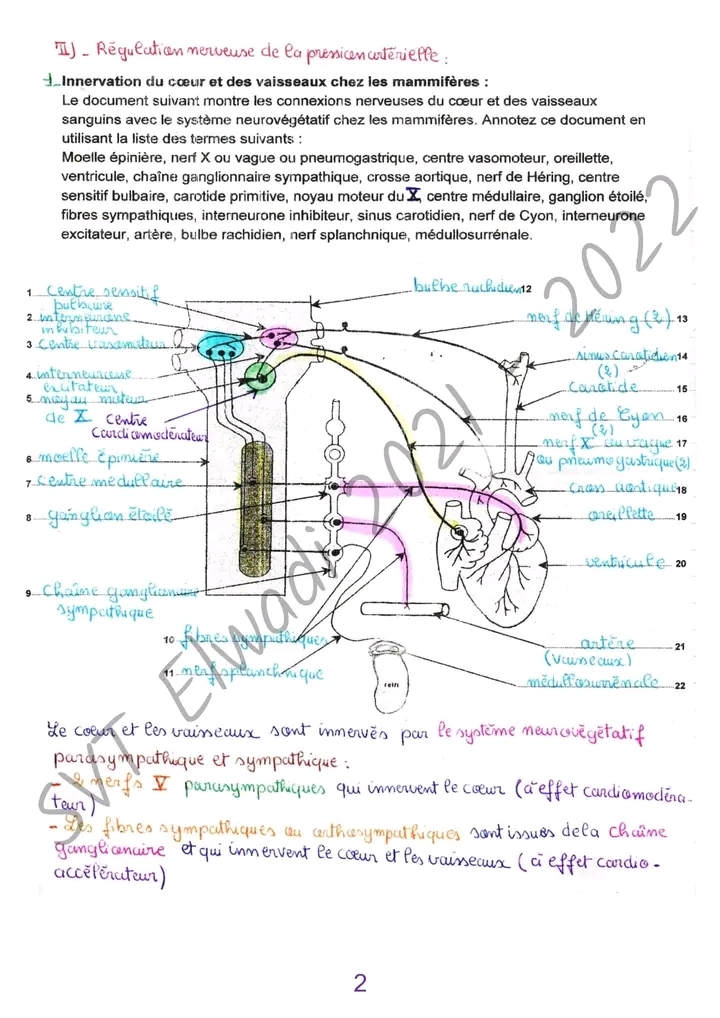 II) - Régulation nerveuse de la pression artérielle :
1- Innervation du cœur et des vaisseaux chez les mammifères :
Le document suivant montre les connexions nerveuses du cœur et des vaisseaux
sanguins avec le système neurovégétatif chez les mammifères. Annotez ce document en
utilisant la liste des termes suivants :
Moelle épinière, nerf X ou vague ou pneumogastrique, centre vasomoteur, oreillette,
ventricule, chaîne ganglionnaire sympathique, crosse aortique, nerf de Héring, centre
sensitif bulbaire, carotide primitive, noyau moteur du X, centre médullaire, ganglion étoilé,
fibres sympathiques, interneurone inhibiteur, sinus carotidien, nerf de Cyon, interneurone
excitateur, artère, bulbe rachidien, nerf splanchnique, médullosurrénale.
1 Centre sensitif
bulbaire
2 interneurone
inhibiteur
3 Centre vasomoteur
4 interneurone
excitateur
5 noyau moteur
de X centre
Cardiomodérateur
6 moelle épinière
7 centre médullaire
8 ganglion étoilé
9 Chaîne ganglionaire
sympathique
10 fibres sympathiques
11 nerf splanchnique
bulbe rachidien 12
nerf de Héring (2) 13
sinus carotidien 14
(2)
Carotide 15
nerf de Cyon 16
(2)
nerf X ou vague 17
ou pneumogastrique (2)
Cross aortique 18
oreillette 19
ventricule 20
artère 21
(vaisseaux)
médullosurrénale 22
rein
Le cœur et les vaisseaux sont innervés par le système neurovégétatif
parasympathique et sympathique :
- 2 nerfs X parasympathiques qui innervent le cœur (à effet cardiomodéra-
teur)
- Les fibres sympathiques ou orthosympathiques sont issues de la chaîne
ganglionaire et qui innervent le cœur et les vaisseaux (à effet cardio-
accélérateur)
SVT Elwadi 2021 2022
2